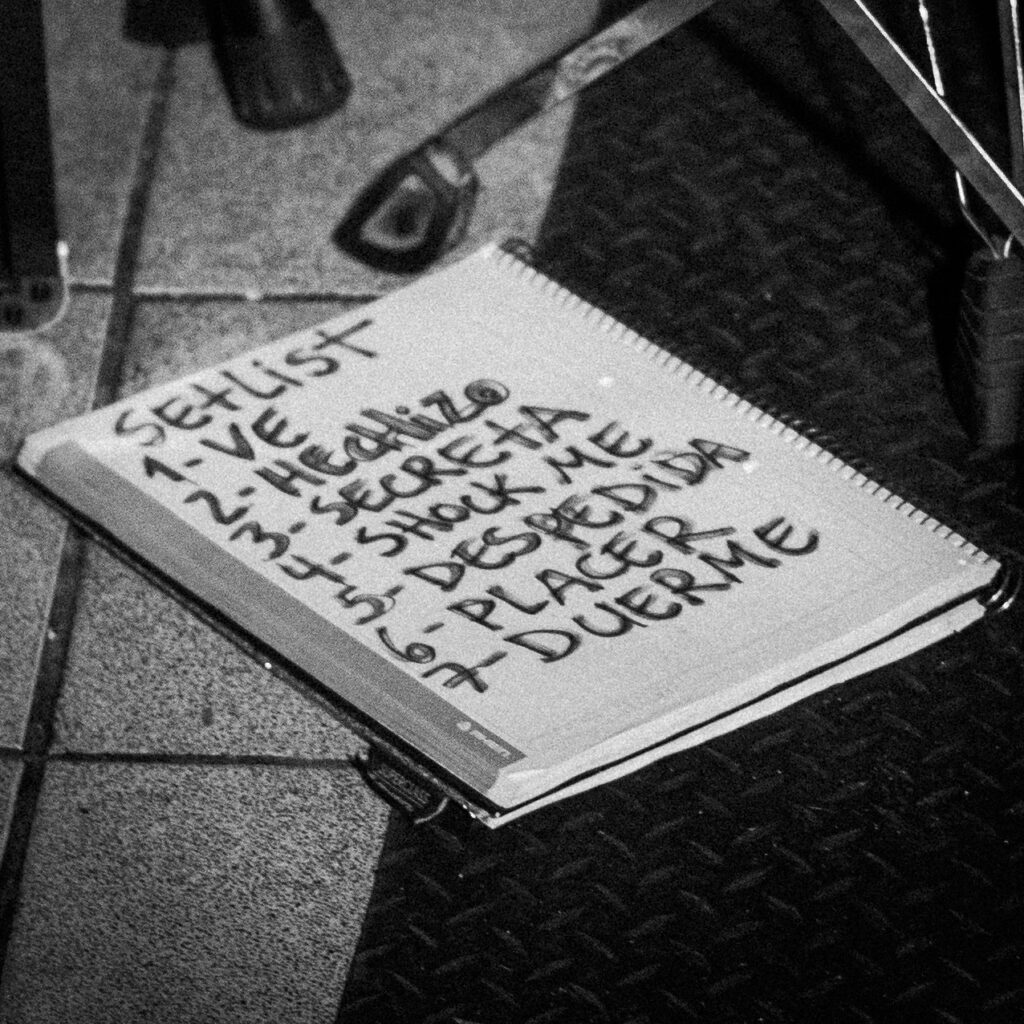 SEtLiSt
1- VE
2- HECHIZO
3- SECREtA
4- SHOCK ME
5- DESPEDiDA
6- PLACER
7- DUERME